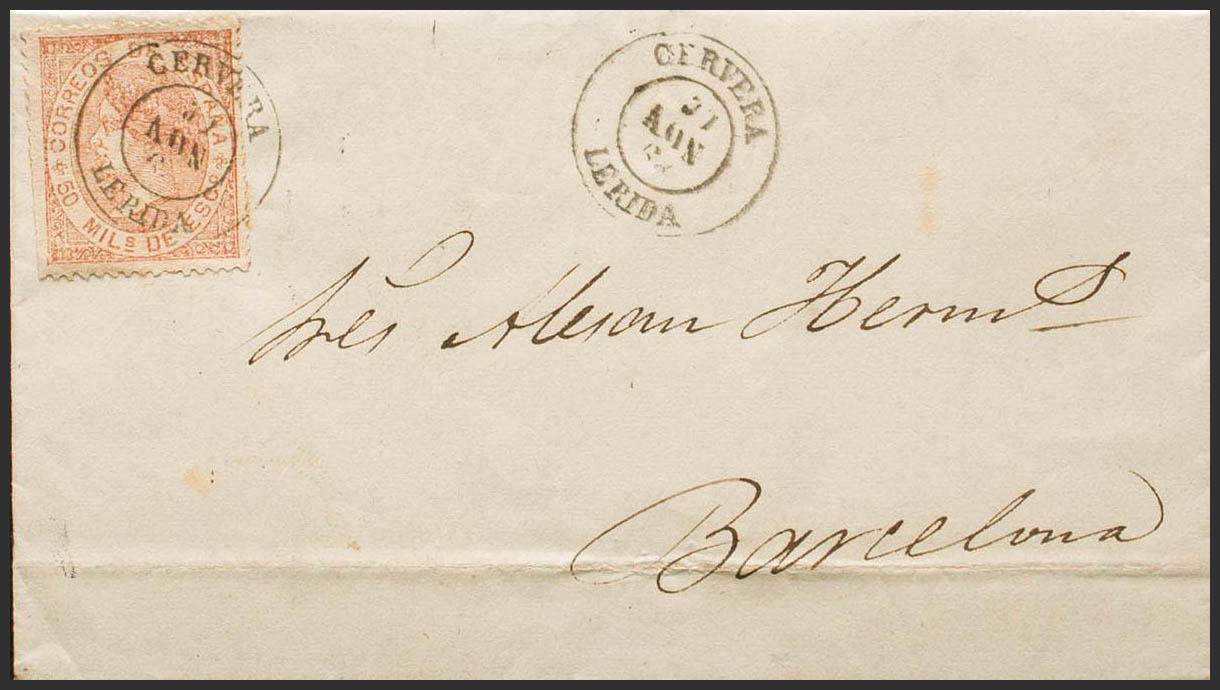 CORREOS DE ESPAÑA
50 MILS DE ESCO
CERVERA
LERIDA
CERVERA
LERIDA
Sres Alesan Herms
Barcelona